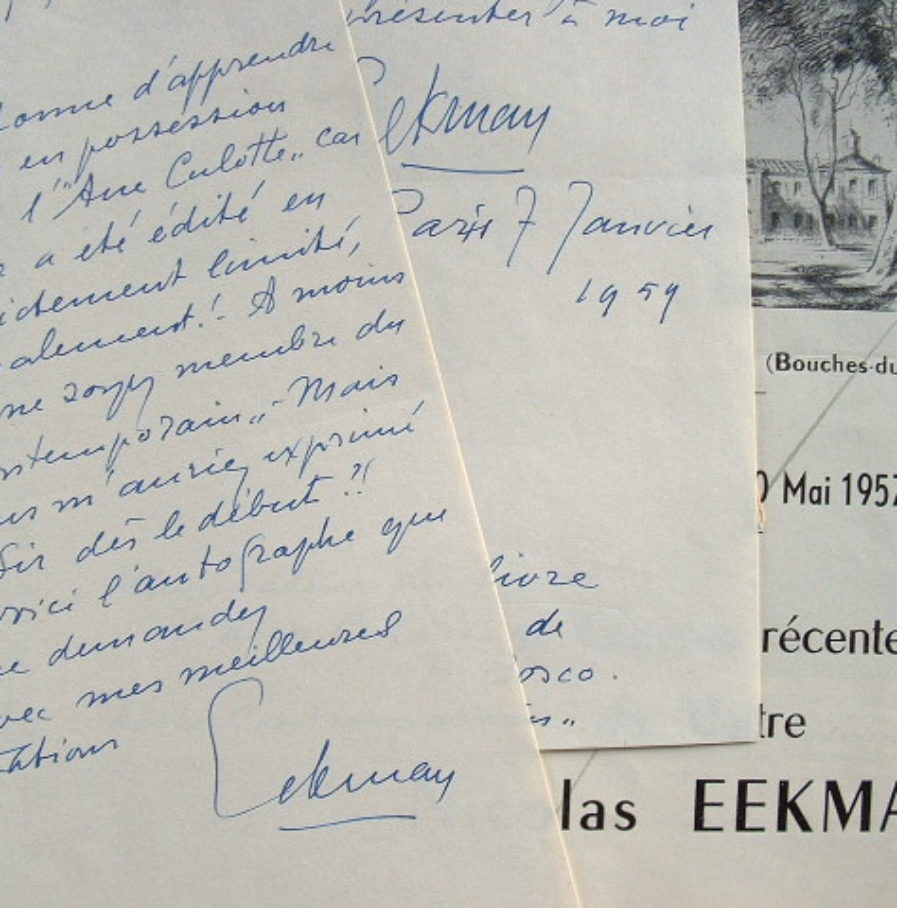 d'apprendre
en possession
l'"Ane Culotte" car
a été édité en
limité,
! A moins
ne soyez membre du
Mais
m'auriez exprimé
dès le début ?!
voici l'autographe que
demandez
avec mes meilleures
Eekman
présenter à moi
Eekman
Paris 7 Janvier
1959
livre
de
osco.
(Bouches-du
0 Mai 1957
récente
tre
las EEKMA